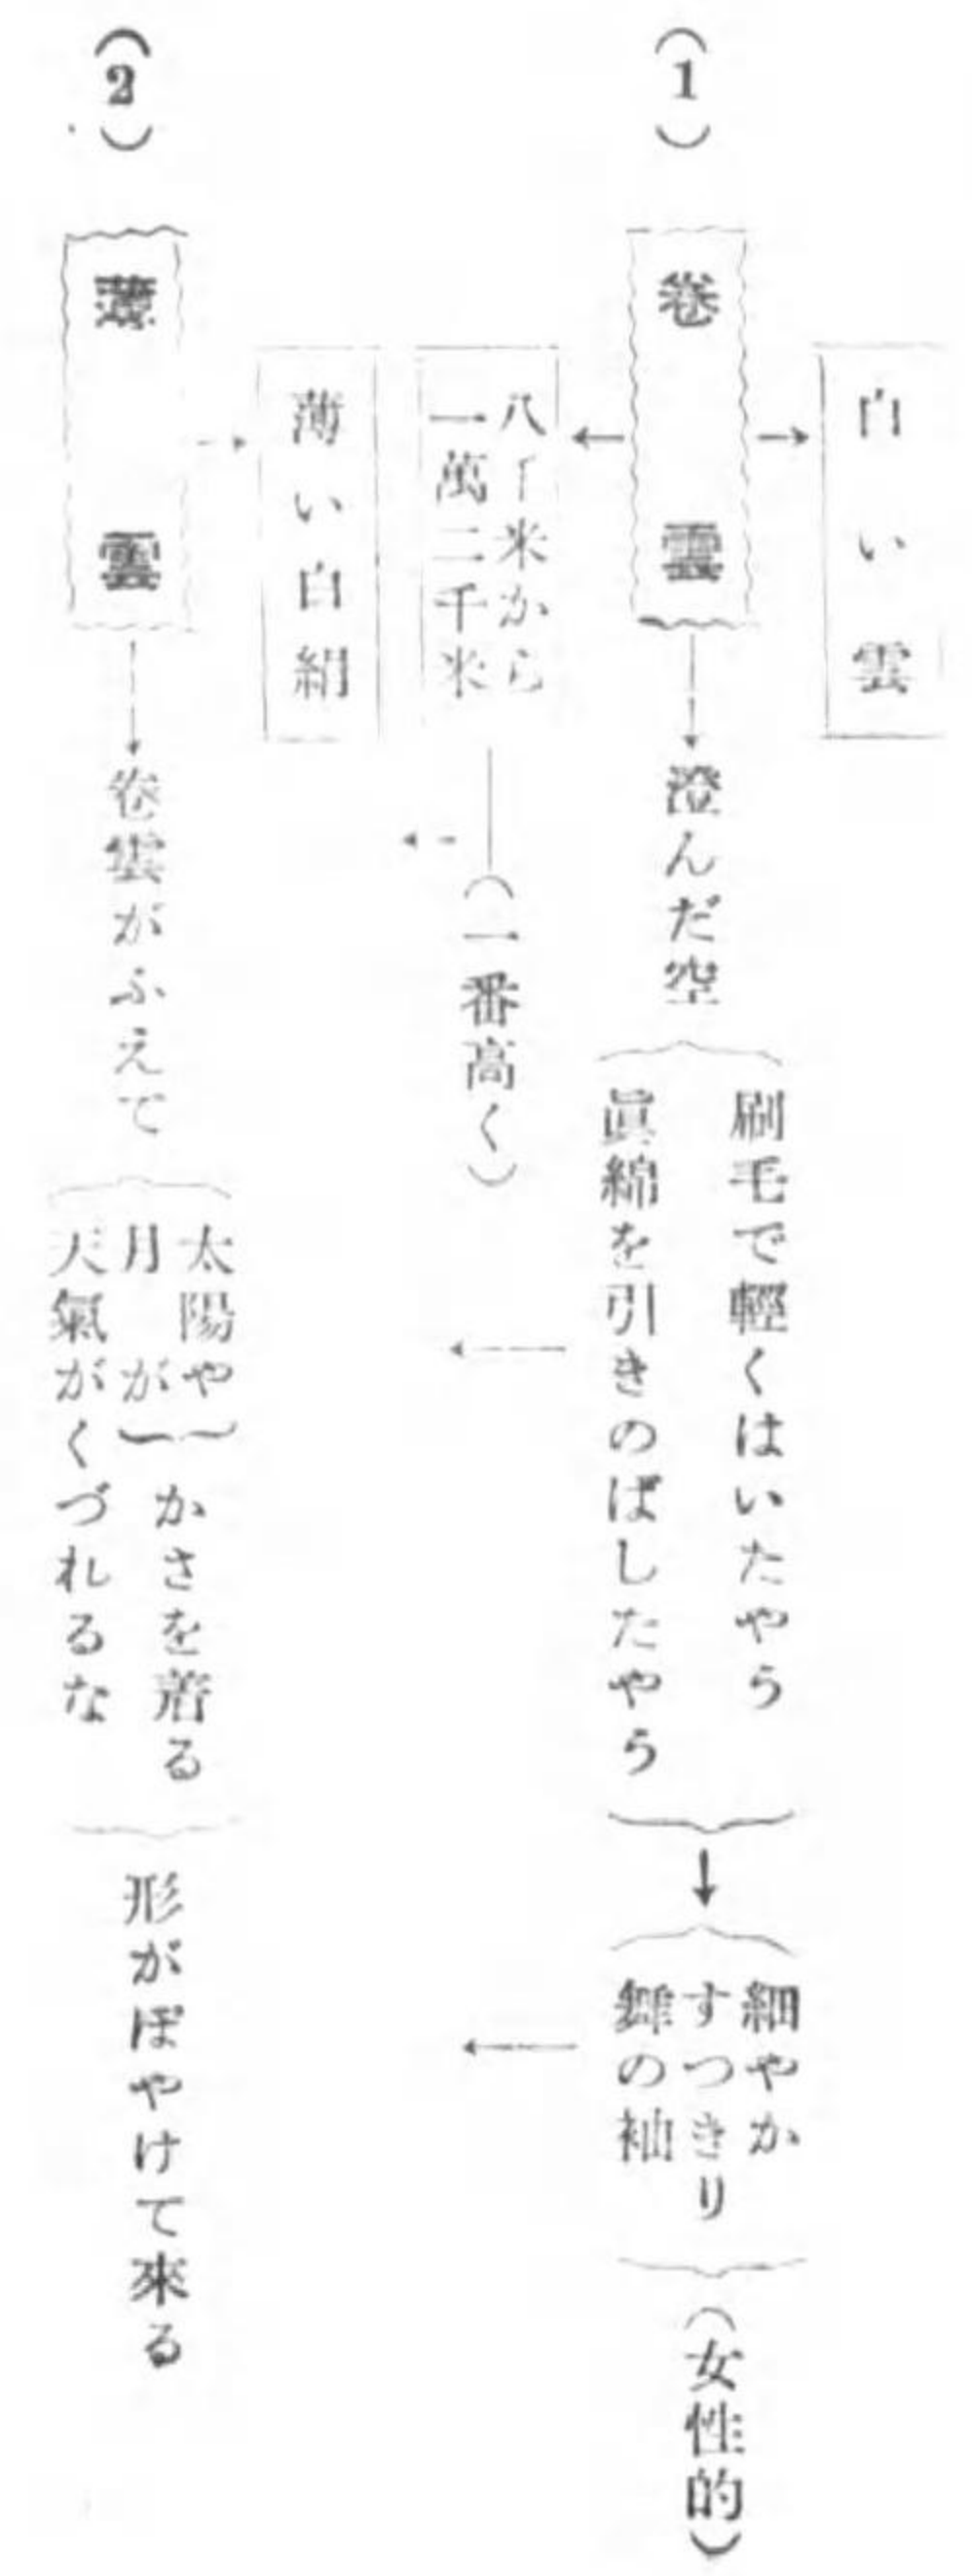 白い雲
(1)
卷雲
澄んだ空
刷毛で輕くはいたやう
眞綿を引きのばしたやう
細やか
すつきり
舞の袖
(女性的)
八千米から
一萬二千米
(一番高く)
薄い白絹
(2)
薄雲
卷雲がふえて
太陽や
月が
かさを着る
天氣がくづれるな
形がぼやけて來る